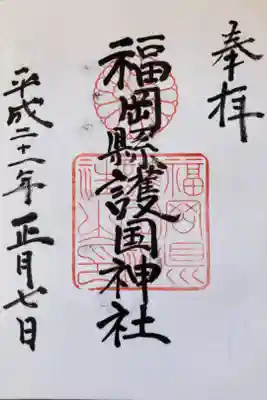 奉拝
福岡縣護国神社
平成二十一年正月七日